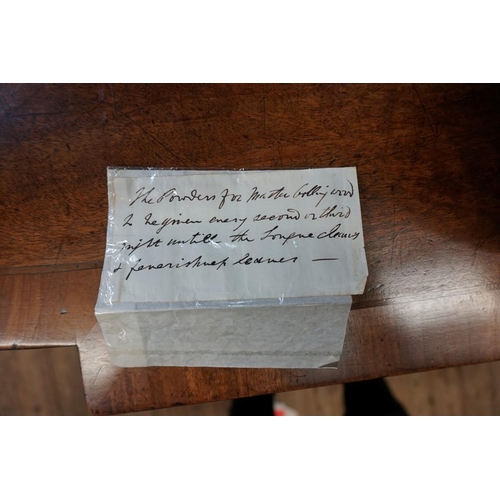 The Powders for Master Collingwood
to be given every second or third
night untill the Tongue cleans
& feverishness leaves —